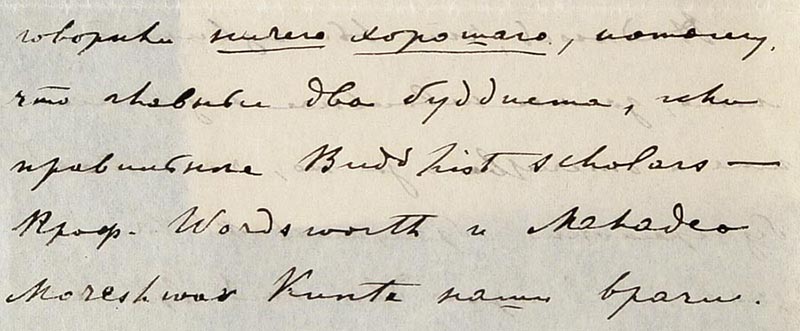 говорили ничего хорошаго, потому,
что главные два буддиста, или
правильнее Buddhist scholars —
Проф. Wordsworth и Mahadeo
Moreshwar Kunte наши враги.